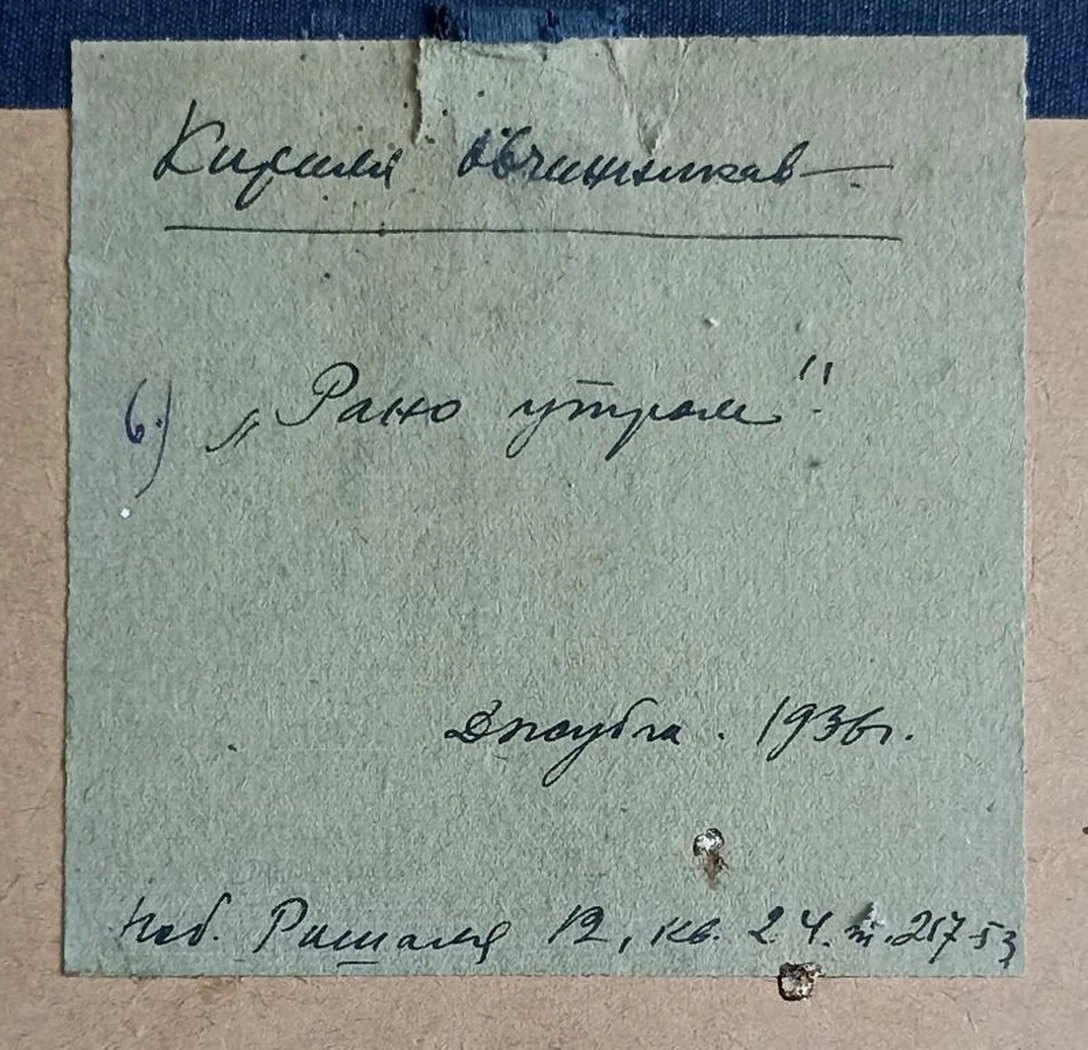 Кирилл Овчинников
6.) „Рано утром".
Джубга. 1936г.
Наб. Рошаля 12, кв. 24. т. 217-53